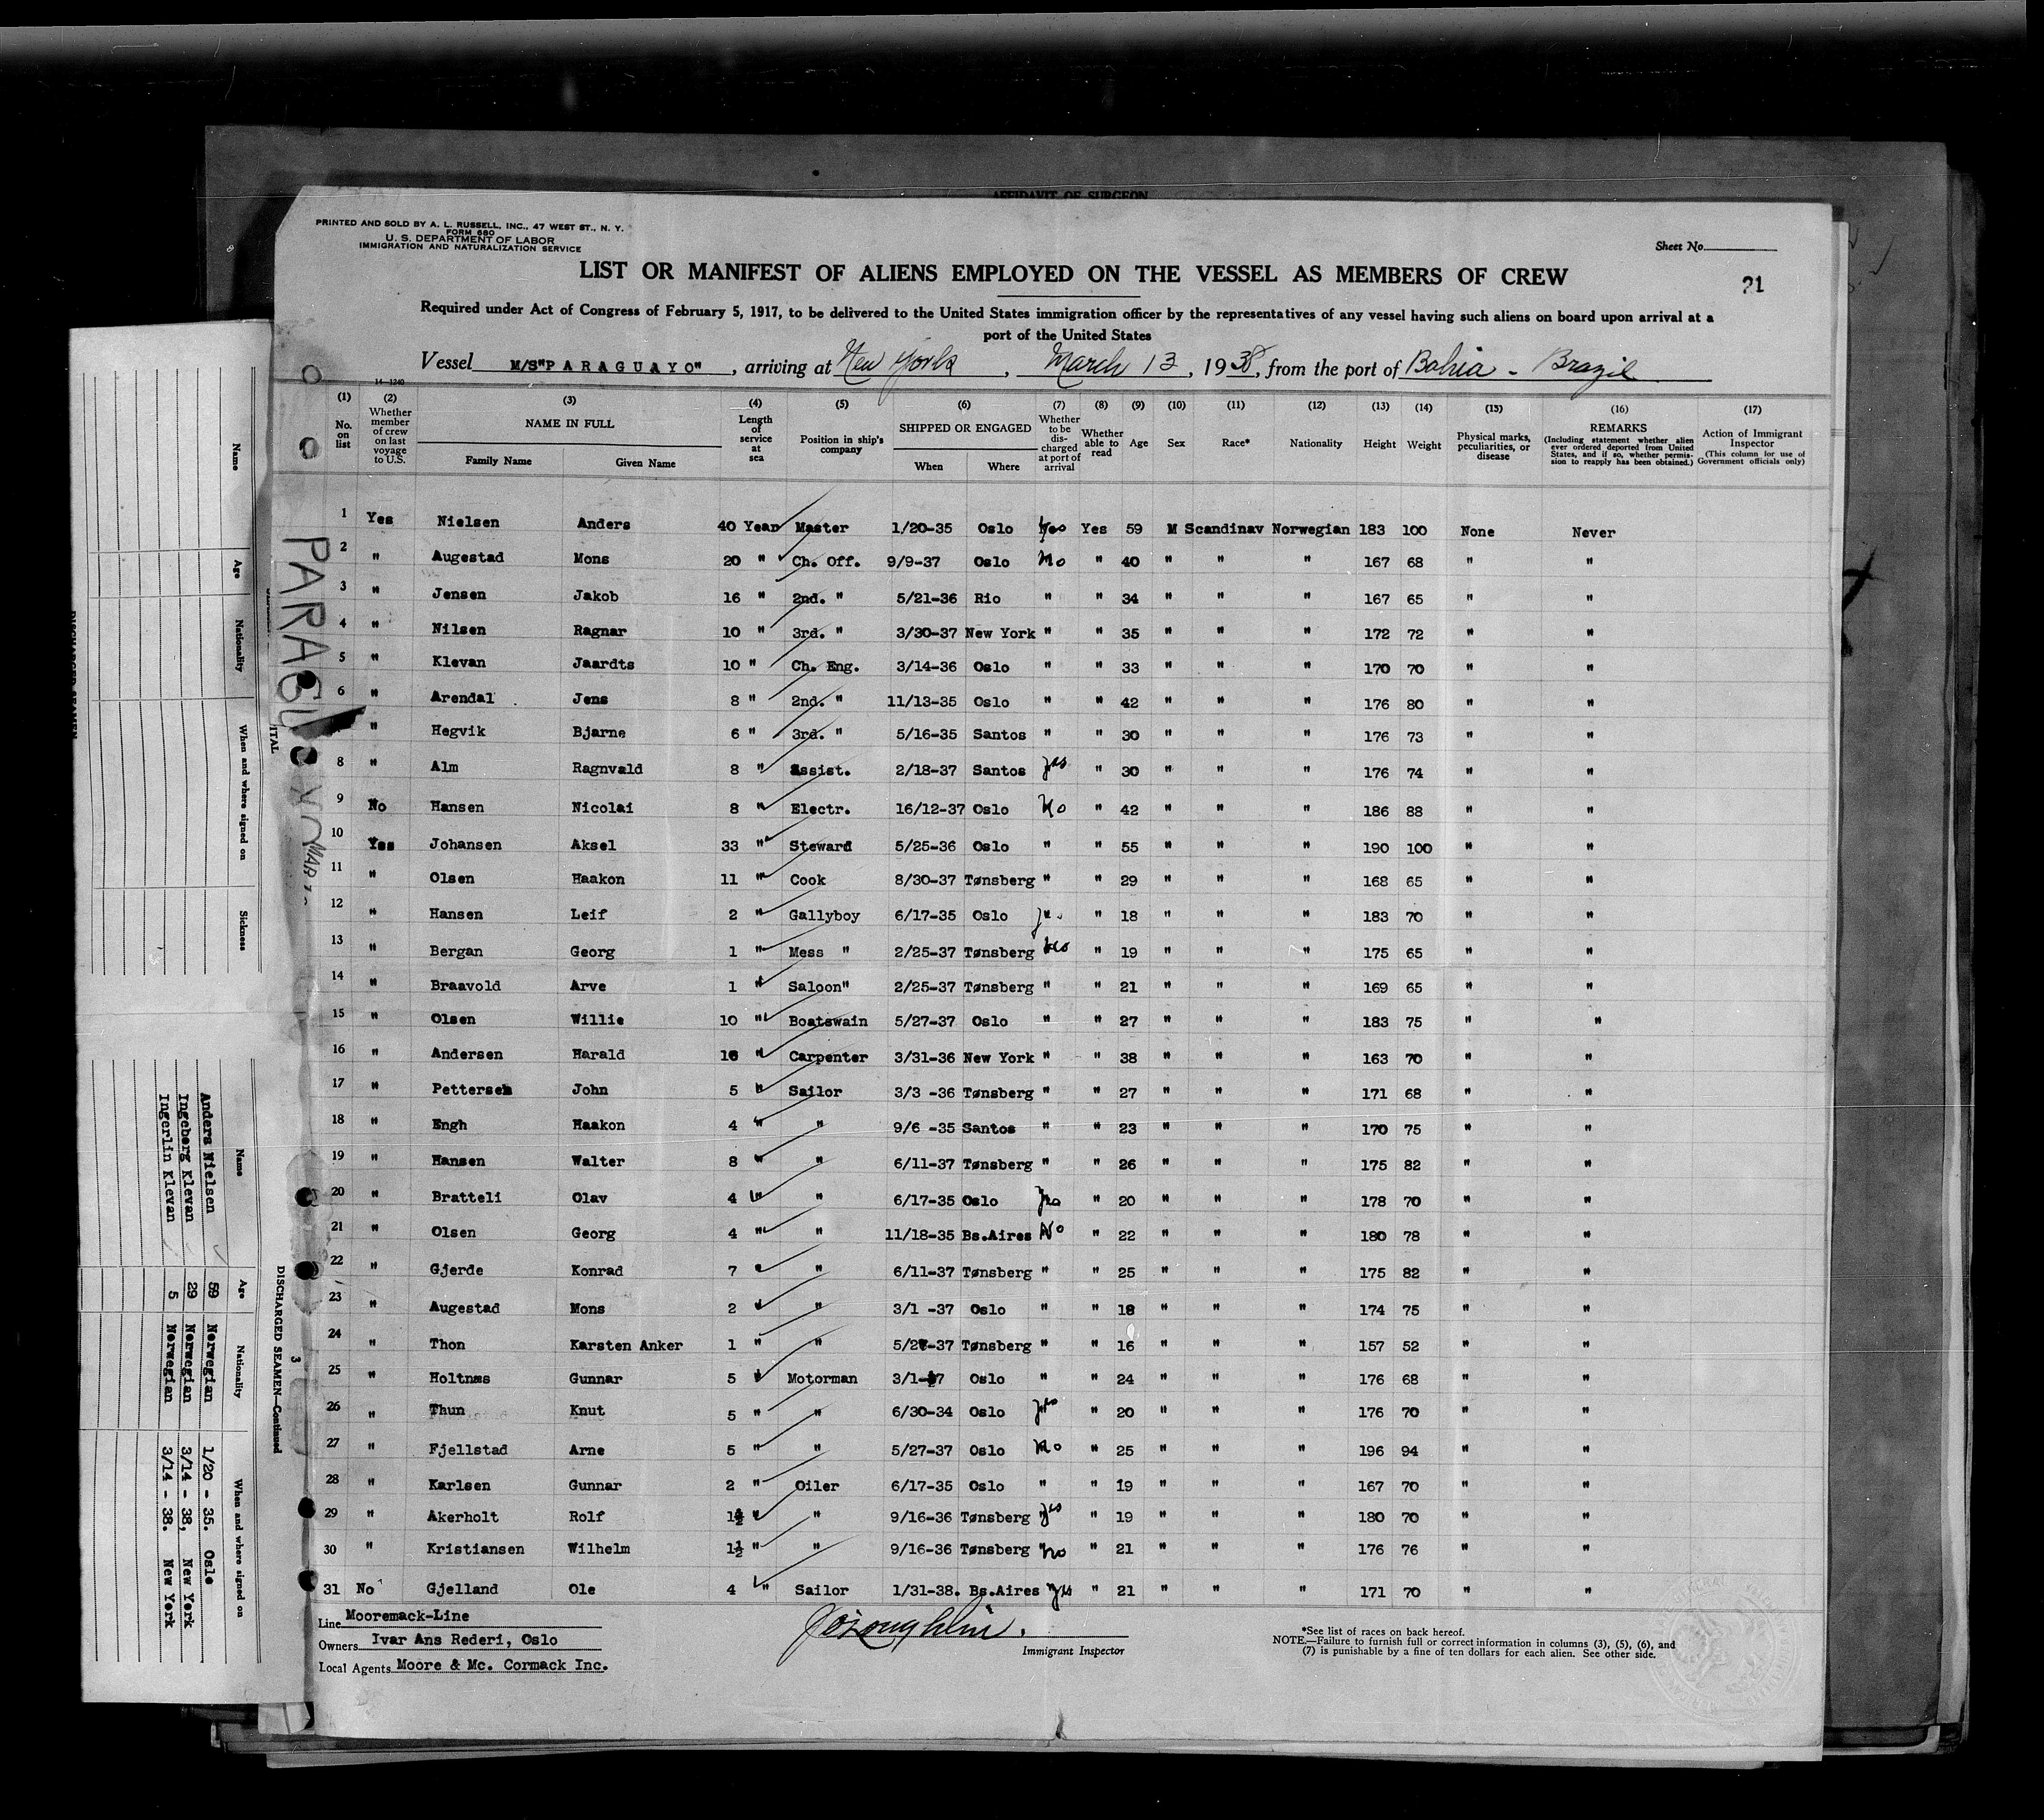 AFFIDAVIT OF SURGEON
PRINTED AND SOLD BY A. L. RUSSELL, INC., 47 WEST ST., N. Y.
FORM 680
U. S. DEPARTMENT OF LABOR
IMMIGRATION AND NATURALIZATION SERVICE
Sheet No.
LIST OR MANIFEST OF ALIENS EMPLOYED ON THE VESSEL AS MEMBERS OF CREW
21
Required under Act of Congress of February 5, 1917, to be delivered to the United States immigration officer by the representatives of any vessel having such aliens on board upon arrival at a
port of the United States
Vessel M/S"PARAGUAYO", arriving at New York, March 13, 1938, from the port of Bahia - Brazil
14-1240
(1) (2) (3) (4) (5) (6) (7) (8) (9) (10) (11) (12) (13) (14) (15) (16) (17)
No. on list
Whether member of crew on last voyage to U.S.
NAME IN FULL
Family Name Given Name
Length of service at sea
Position in ship's company
SHIPPED OR ENGAGED
When Where
Whether to be discharged at port of arrival
Whether able to read
Age
Sex
Race*
Nationality
Height
Weight
Physical marks, peculiarities, or disease
REMARKS
(Including statement whether alien ever ordered deported from United States, and if so, whether permission to reapply has been obtained.)
Action of Immigrant Inspector
(This column for use of Government officials only)
1 Yes Nielsen Anders 40 Year Master 1/20-35 Oslo Yes Yes 59 M Scandinav Norwegian 183 100 None Never
2 " Augestad Mons 20 " Ch. Off. 9/9-37 Oslo No " 40 " " " 167 68 " "
3 " Jensen Jakob 16 " 2nd. " 5/21-36 Rio " " 34 " " " 167 65 " "
4 " Nilsen Ragnar 10 " 3rd. " 3/30-37 New York " " 35 " " " 172 72 " "
5 " Klevan Jaardts 10 " Ch. Eng. 3/14-36 Oslo " " 33 " " " 170 70 " "
6 " Arendal Jens 8 " 2nd. " 11/13-35 Oslo " " 42 " " " 176 80 " "
" Hegvik Bjarne 6 " 3rd. " 5/16-35 Santos " " 30 " " " 176 73 " "
8 " Alm Ragnvald 8 " Assist. 2/18-37 Santos yes " 30 " " " 176 74 " "
9 No Hansen Nicolai 8 " Electr. 16/12-37 Oslo No " 42 " " " 186 88 " "
10 Yes Johansen Aksel 33 " Steward 5/25-36 Oslo " " 55 " " " 190 100 " "
11 " Olsen Haakon 11 " Cook 8/30-37 Tønsberg " " 29 " " " 168 65 " "
12 " Hansen Leif 2 " Gallyboy 6/17-35 Oslo yes " 18 " " " 183 70 " "
13 " Bergan Georg 1 " Mess " 2/25-37 Tønsberg " 19 " " " 175 65 " "
14 " Braavold Arve 1 " Saloon" 2/25-37 Tønsberg " " 21 " " " 169 65 " "
15 " Olsen Willie 10 " Boatswain 5/27-37 Oslo " " 27 " " " 183 75 " "
16 " Andersen Harald 16 " Carpenter 3/31-36 New York " " 38 " " " 163 70 " "
17 " Pettersen John 5 " Sailor 3/3 -36 Tønsberg " " 27 " " " 171 68 " "
18 " Engh Haakon 4 " " 9/6 -35 Santos " " 23 " " " 170 75 " "
19 " Hansen Walter 8 " " 6/11-37 Tønsberg " " 26 " " " 175 82 " "
20 " Bratteli Olav 4 " " 6/17-35 Oslo Yes " 20 " " " 178 70 " "
21 " Olsen Georg 4 " " 11/18-35 Bs.Aires No " 22 " " " 180 78 " "
22 " Gjerde Konrad 7 " " 6/11-37 Tønsberg " " 25 " " " 175 82 " "
23 " Augestad Mons 2 " " 3/1 -37 Oslo " " 18 " " " 174 75 " "
24 " Thon Karsten Anker 1 " " Tønsberg " " 16 " " " 157 52 " "
25 " Holtnæs Gunnar 5 " Motorman 3/1-37 Oslo " " 24 " " " 176 68 " "
26 " Thun Knut 5 " " 6/30-34 Oslo yes " 20 " " " 176 70 " "
27 " Fjellstad Arne 5 " " 5/27-37 Oslo No " 25 " " " 196 94 " "
28 " Karlsen Gunnar 2 " Oiler 6/17-35 Oslo " " 19 " " " 167 70 " "
29 " Akerholt Rolf 1½ " " 9/16-36 Tønsberg yes " 19 " " " 180 70 " "
30 " Kristiansen Wilhelm 1½ " " 9/16-36 Tønsberg no " 21 " " " 176 76 " "
31 No Gjelland Ole 4 " Sailor 1/31-38. Bs.Aires yes " 21 " " " 171 70 " "
Line Mooremack-Line
Owners Ivar Ans Rederi, Oslo
Local Agents Moore & Mc. Cormack Inc.
Immigrant Inspector
*See list of races on back hereof.
NOTE.—Failure to furnish full or correct information in columns (3), (5), (6), and
(7) is punishable by a fine of ten dollars for each alien. See other side.
Name Age Nationality When and where signed on Sickness
DISCHARGED SEAMEN
ITAL
MAR
DISCHARGED SEAMEN—Continued
3
Name Age Nationality When and where signed on
Anders Nielsen 59 Norwegian 1/20 - 35. Oslo
Ingeborg Klevan 29 Norwegian 3/14 - 38, New York
Ingerlin Klevan 5 Norwegian 3/14 - 38. New York